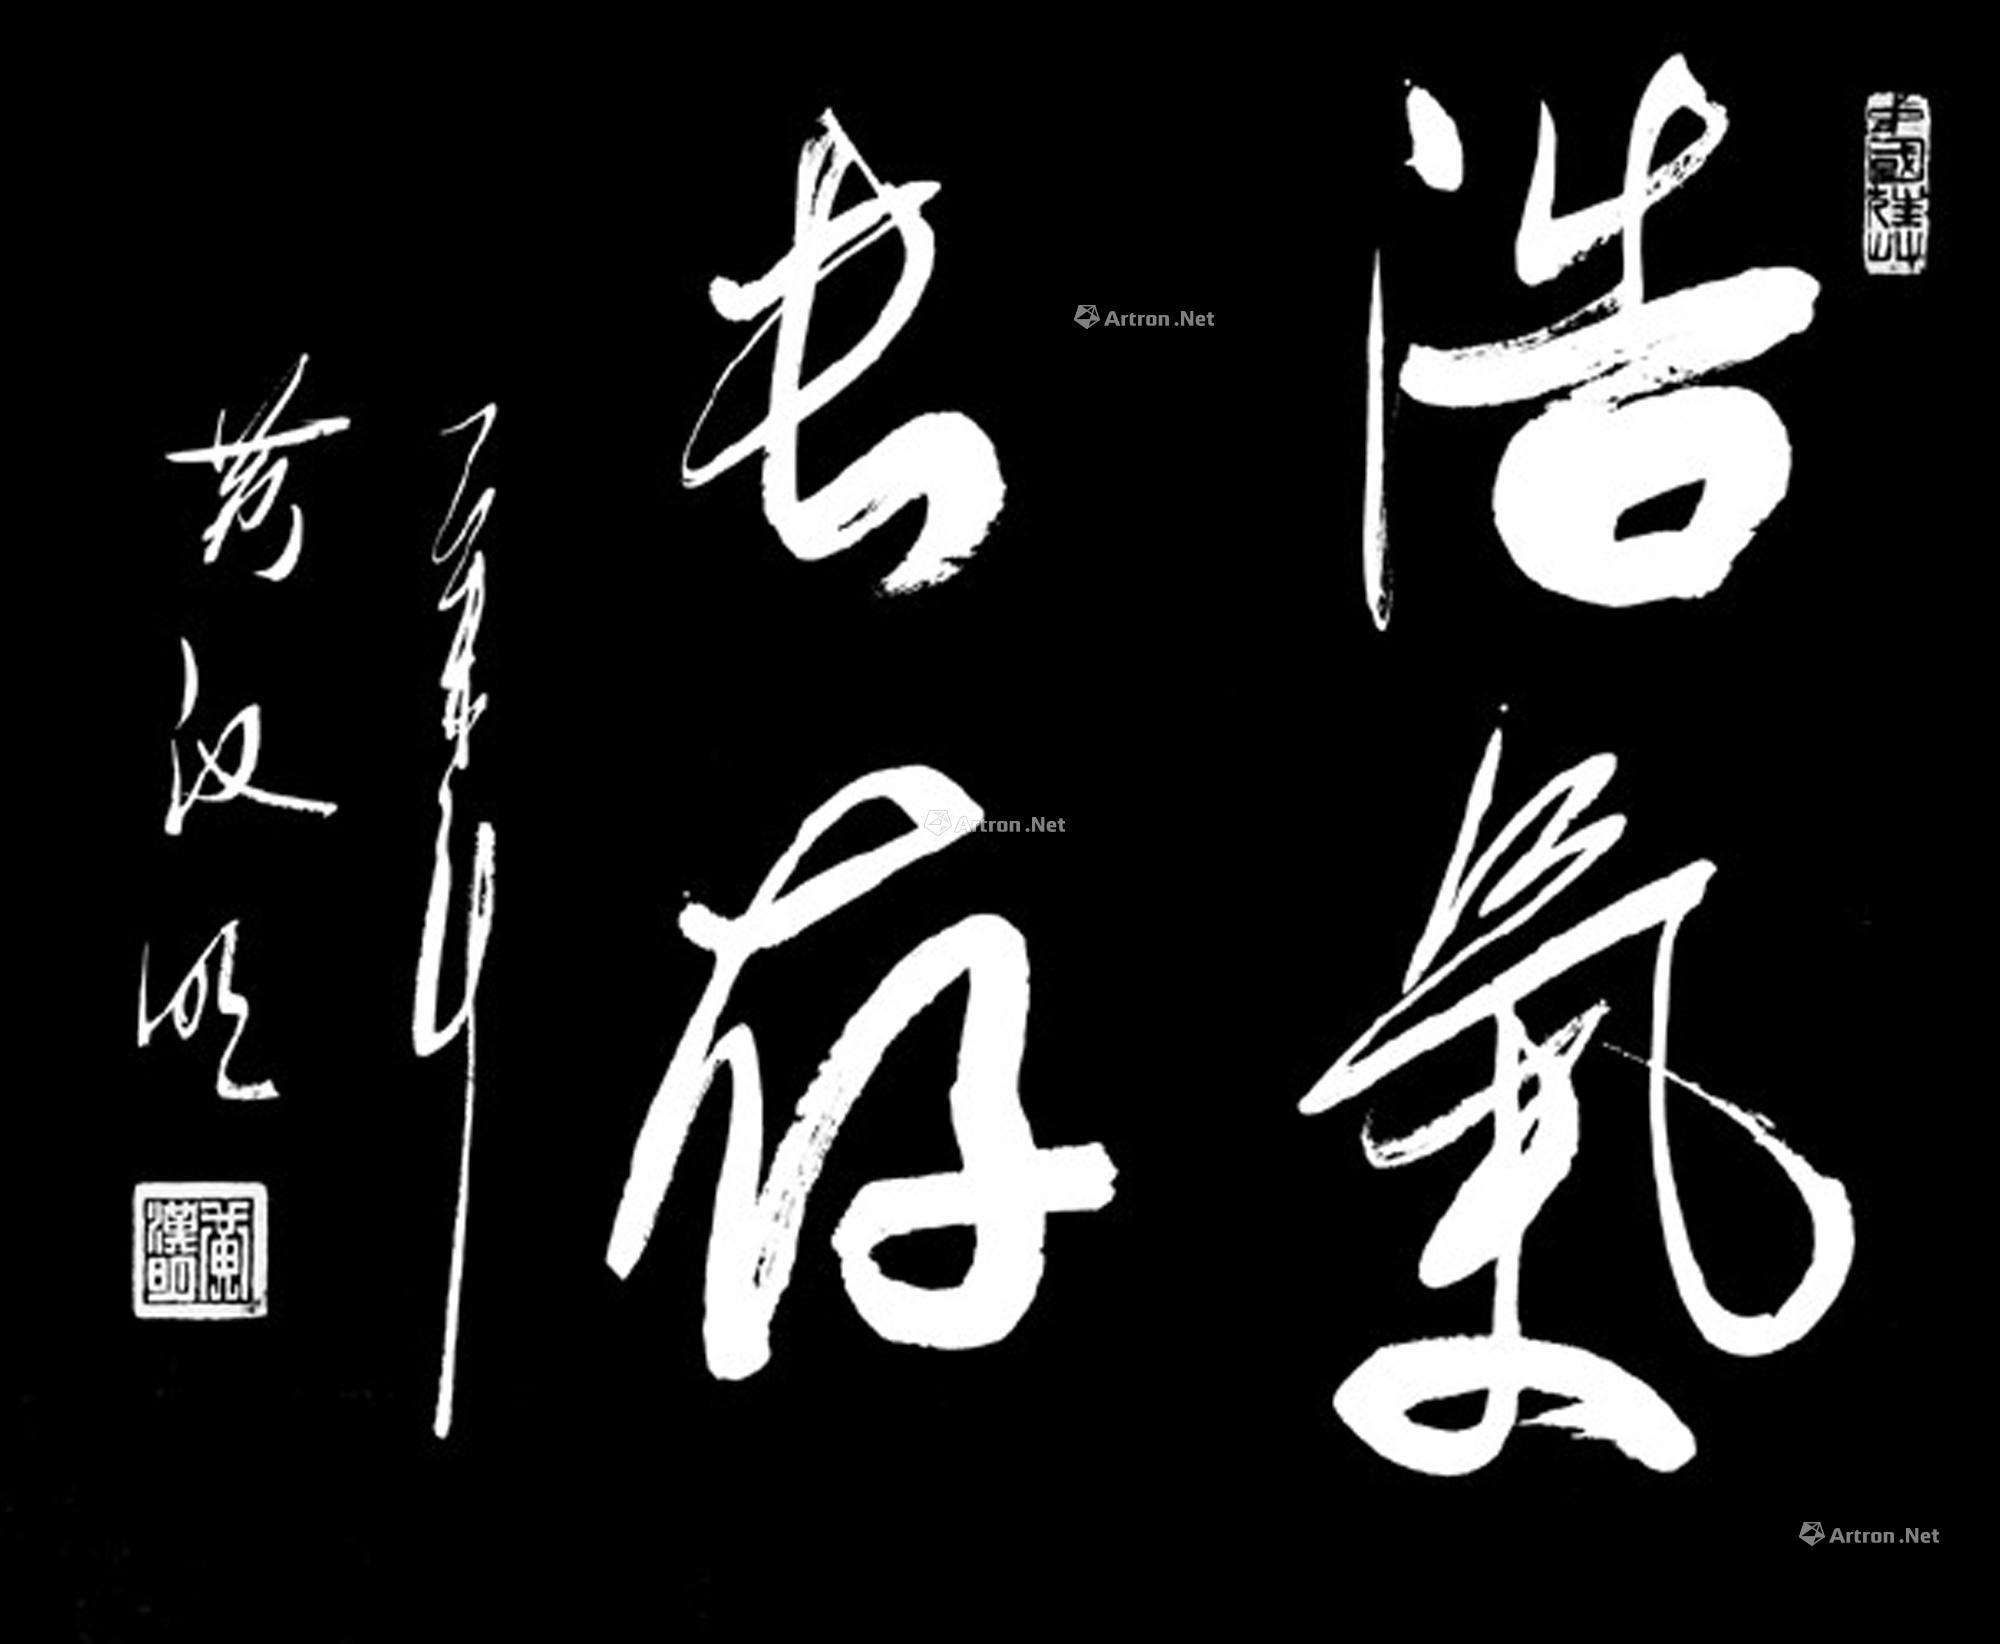 浩氣
長存
黄汉明
黄漢明
Artron.Net
Artron.Net
Artron.Net